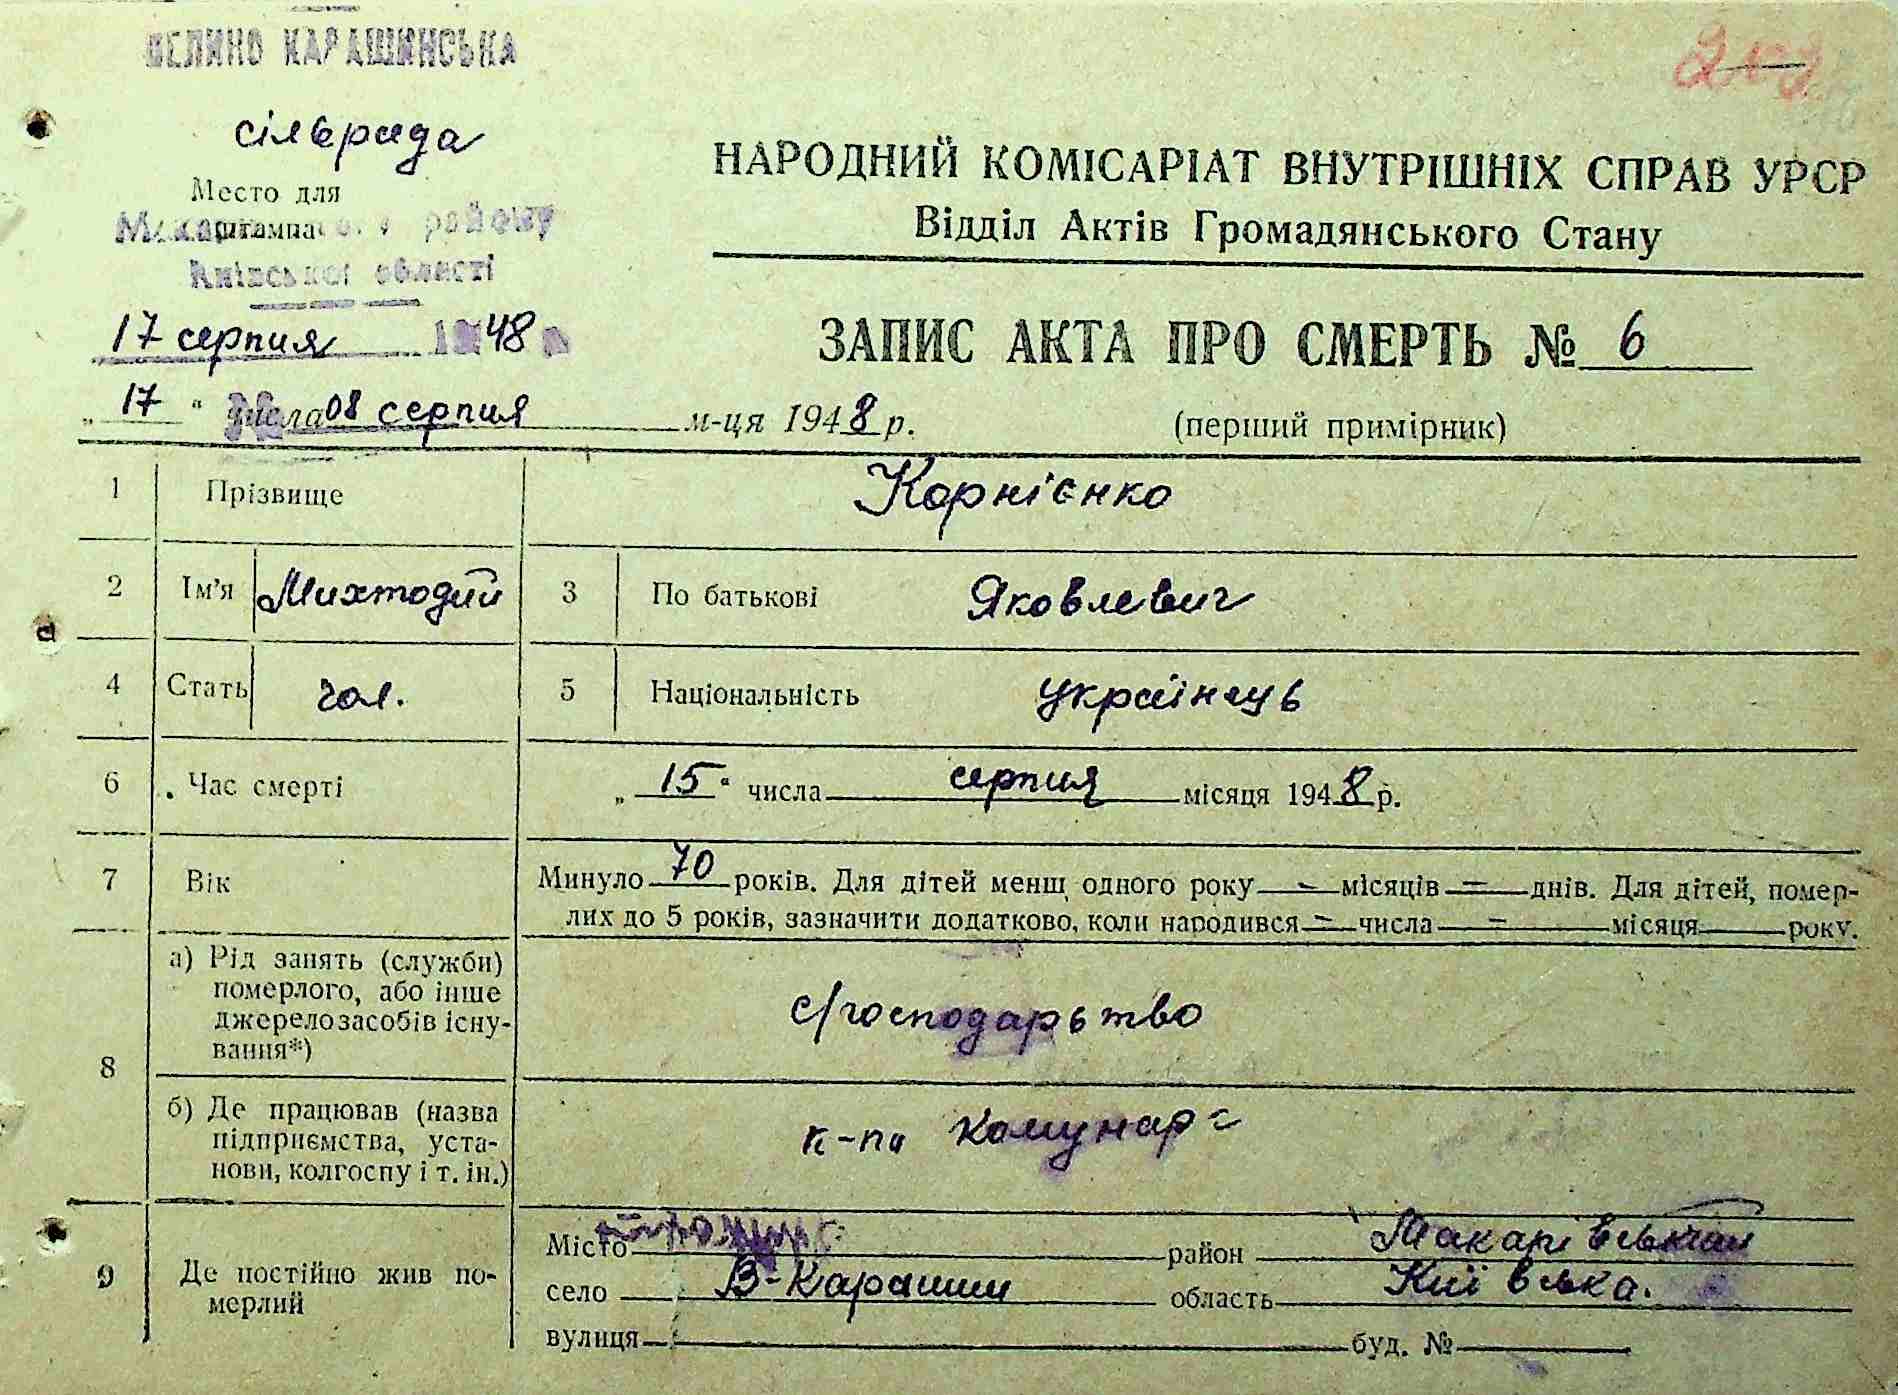 ВЕЛИКО КАРАШИНСЬКА
сільрада
Место для
штампа
району
Київської області
17 серпня 1948
„ 17 “ числа 08 серпня м-ця 1948 р.
НАРОДНИЙ КОМІСАРІАТ ВНУТРІШНІХ СПРАВ УРСР
Відділ Актів Громадянського Стану
ЗАПИС АКТА ПРО СМЕРТЬ № 6
(перший примірник)
1 Прізвище Корнієнко
2 Ім’я Михтодий 3 По батькові Яковлевич
4 Стать чол. 5 Національність українець
6 Час смерті „ 15 “ числа серпня місяця 1948 р.
7 Вік Минуло 70 років. Для дітей менщ одного року - місяців = днів. Для дітей, помер-
лих до 5 років, зазначити додатково, коли народився = числа = місяця року.
8 а) Рід занять (служби)
померлого, або інше
джерело засобів існу-
вання*)
с/господарьтво
б) Де працював (назва
підприємства, уста-
нови, колгоспу і т. ін.)
Комунар
9 Де постійно жив по-
мерлий
Місто район Макарівський
село В-Карашин область Київська.
вулиця буд. №